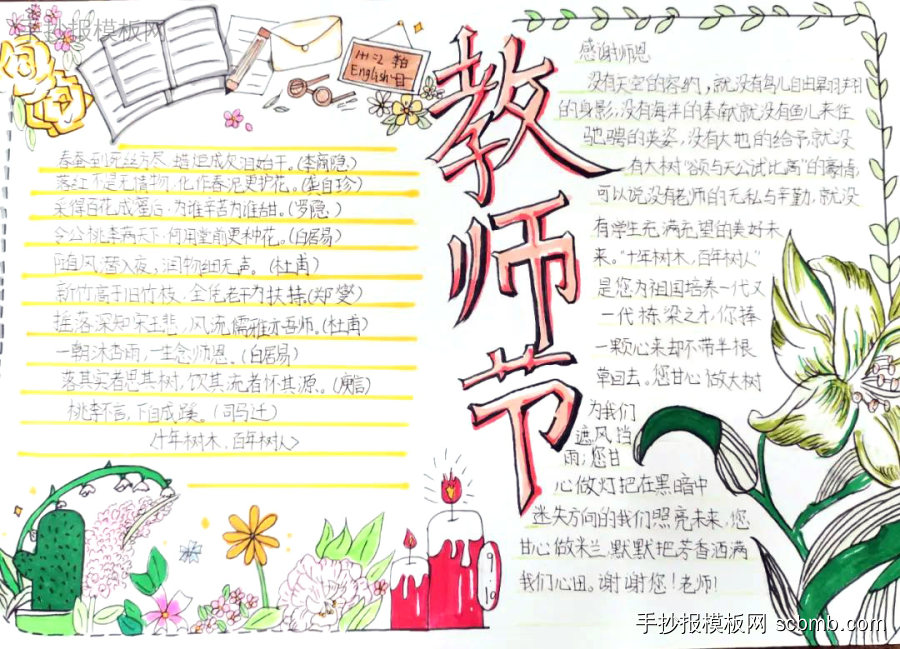 手抄报模板网
1+1=2
English
教师节
春蚕到死丝方尽 蜡炬成灰泪始干。(李商隐)
落红不是无情物,化作春泥更护花。(龚自珍)
采得百花成蜜后,为谁辛苦为谁甜。(罗隐)
令公桃李满天下,何用堂前更种花。(白居易)
随风潜入夜,润物细无声。(杜甫)
新竹高于旧竹枝,全凭老干为扶持(郑燮)
摇落深知宋玉悲,风流儒雅亦吾师。(杜甫)
一朝沐杏雨,一生念师恩。(白居易)
落其实者思其树,饮其流者怀其源。(庾信)
桃李不言,下自成蹊。(司马迁)
<十年树木,百年树人>
感谢师恩
没有天空的容纳,就没有鸟儿自由翱翔
的身影,没有海洋的奉献就没有鱼儿来往
驰骋的英姿,没有大地的给予就没
有大树“欲与天公试比高”的豪情,
可以说没有老师的无私与辛勤,就没
有学生充满希望的美好未
来。“十年树木,百年树人”
是您为祖国培养一代又
一代栋梁之才,你捧
一颗心来却不带半根
草回去。您甘心做大树
为我们
遮风挡
雨;您甘
心做灯把在黑暗中
迷失方向的我们照亮未来,您
甘心做米兰,默默把芳香洒满
我们心田。谢谢您!老师!
9.10
手抄报模板网 scbmb.com